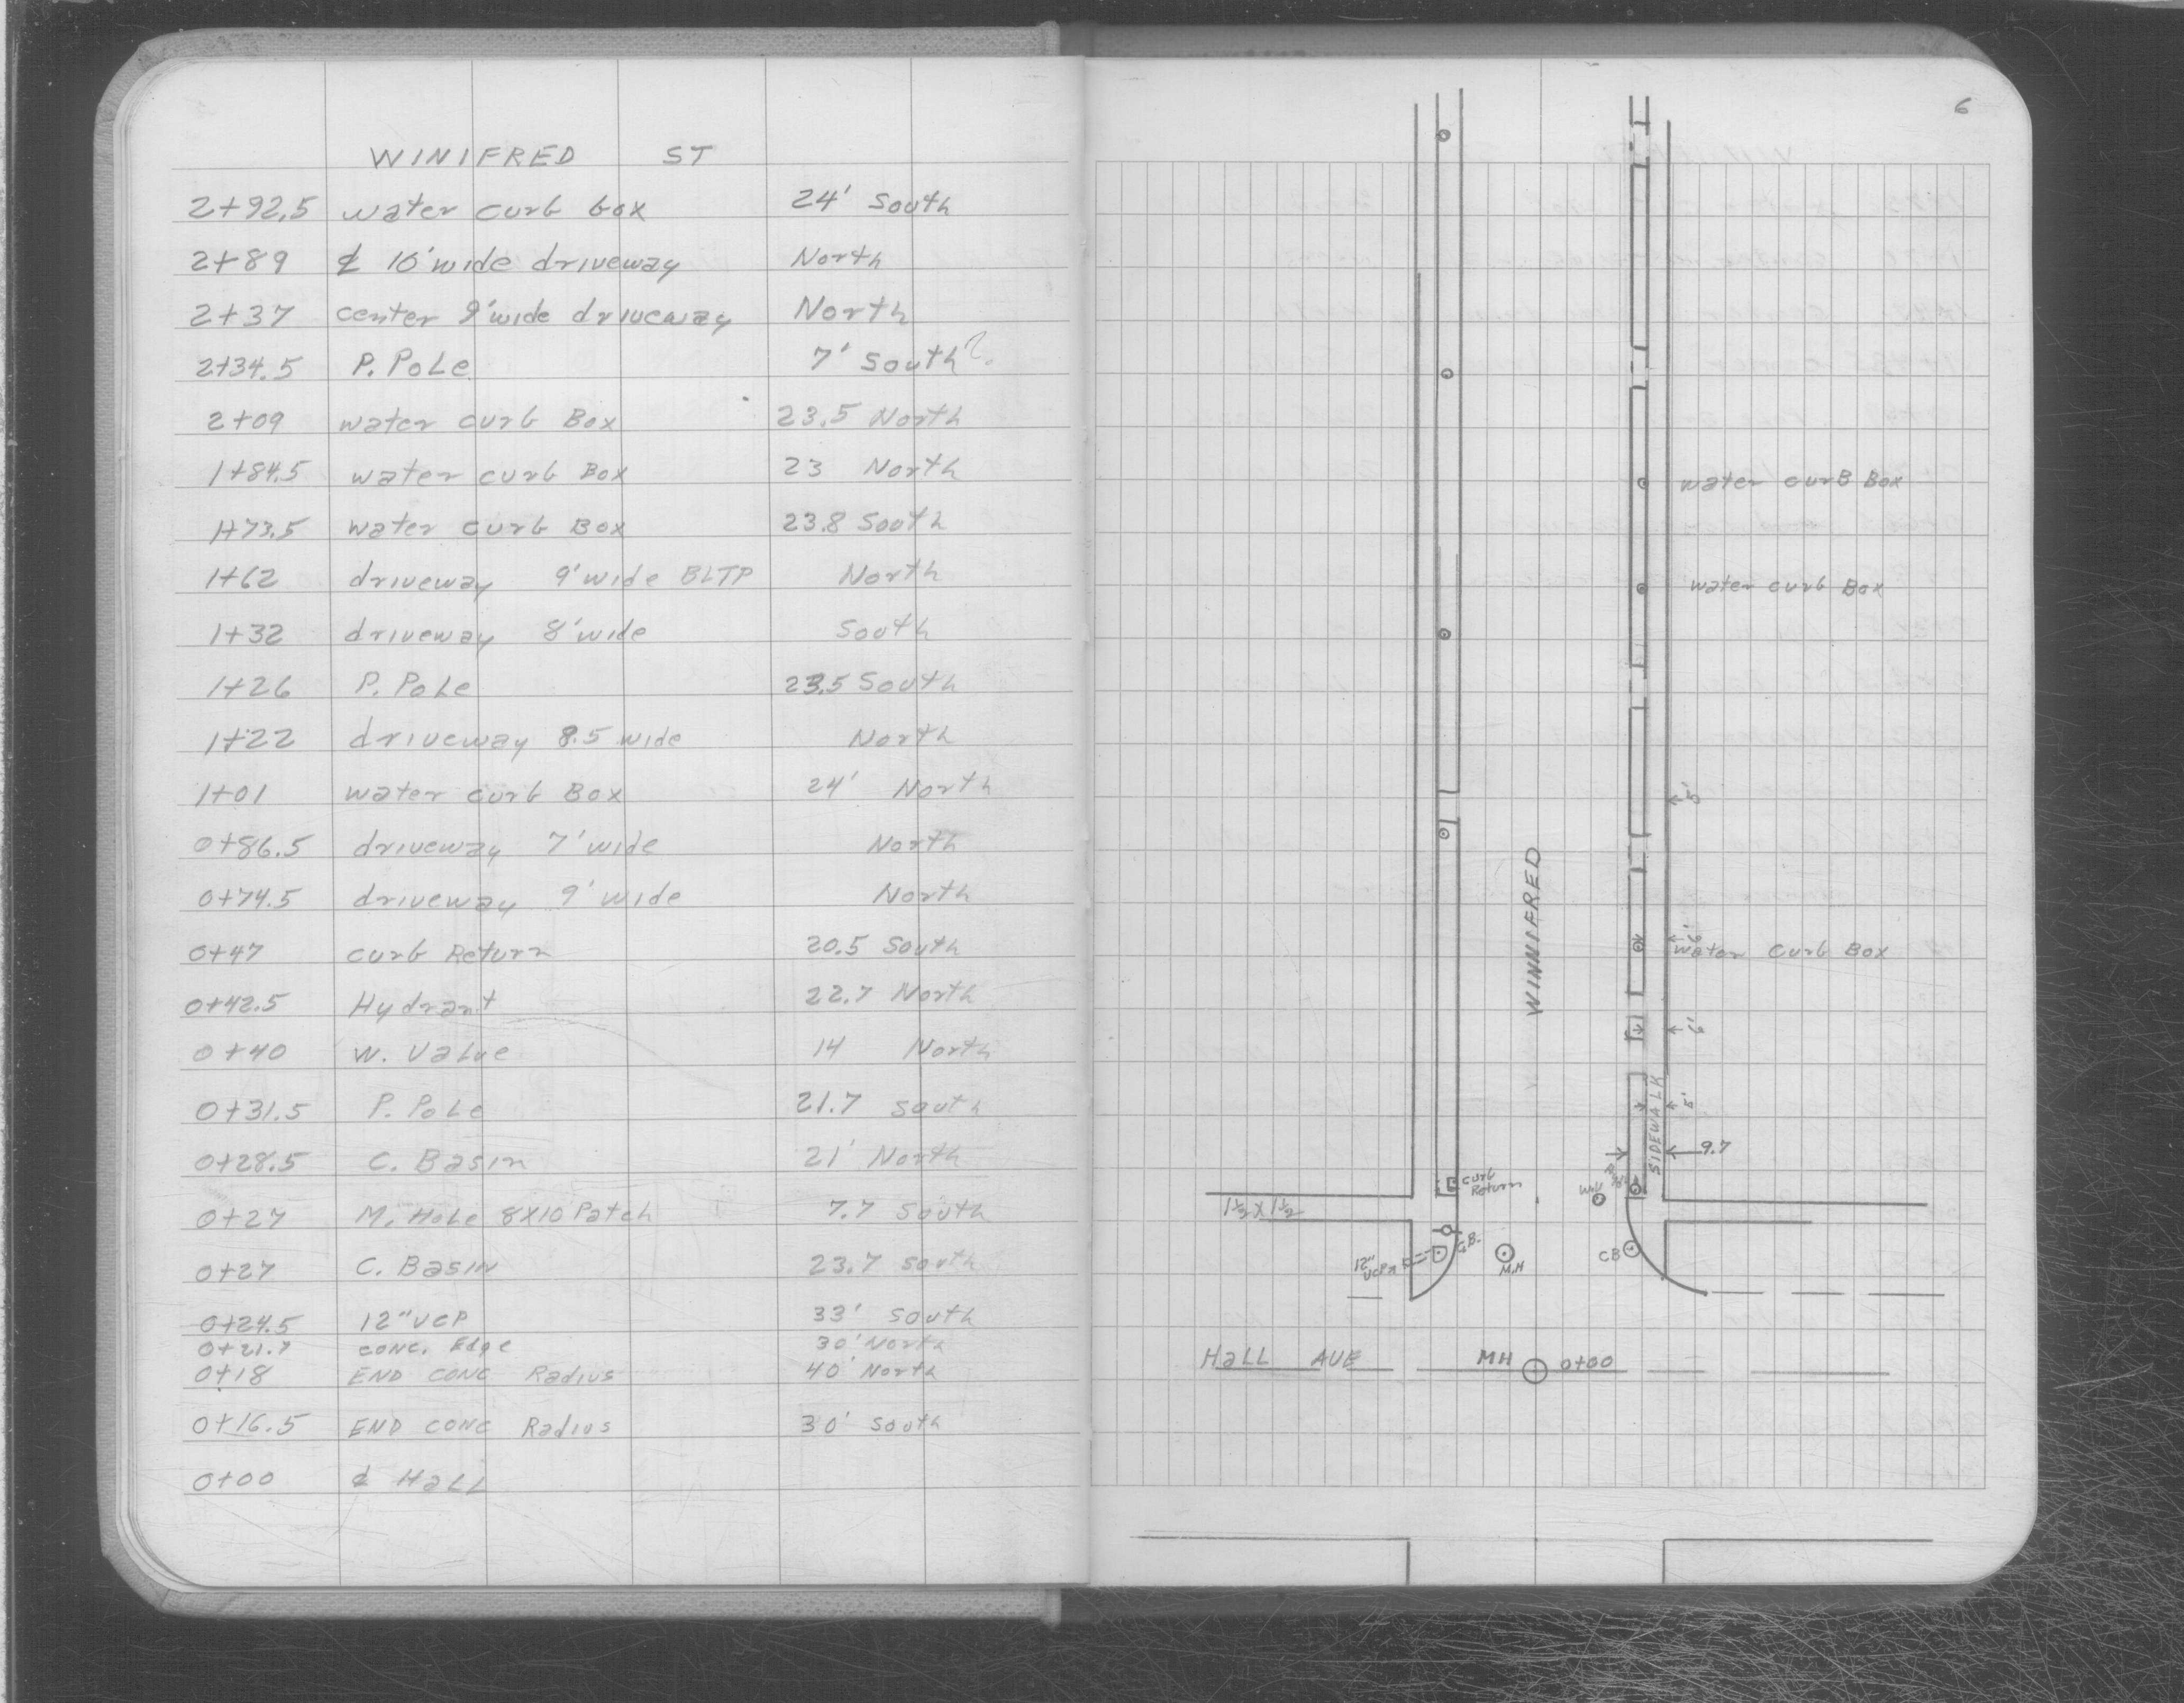 WINIFRED ST
2+92.5 water curb box 24' South
2+89 ℄ 10' wide driveway North
2+37 center 9' wide driveway North
2+34.5 P. Pole 7' South ?.
2+09 water curb Box 23.5 North
1+84.5 water curb Box 23 North
1+73.5 water curb Box 23.8 South
1+62 driveway 9' wide BLTP North
1+32 driveway 8' wide South
1+26 P. Pole 23.5 South
1+22 driveway 8.5 wide North
1+01 water curb Box 24' North
0+86.5 driveway 7' wide North
0+74.5 driveway 9' wide North
0+47 curb Return 20.5 South
0+42.5 Hydrant 22.7 North
0+40 W. Valve 14 North
0+31.5 P. Pole 21.7 South
0+28.5 C. Basin 21' North
0+27 M. Hole 8X10 Patch 7.7 South
0+27 C. Basin 23.7 South
0+24.5 12" VCP 33' South
0+21.7 conc. Edge 30' North
0+18 END CONC Radius 40' North
0+16.5 END CONC Radius 30' South
0+00 ℄ Hall
6
water curB Box
water curb Box
5'
WINNIFRED
6'
water Curb Box
6'
5'
SIDEWALK
9.7
curb
Return
W.V
1½ X 1½
C.B.
12"
VCP
M.H
CB
Hall AVE MH 0+00